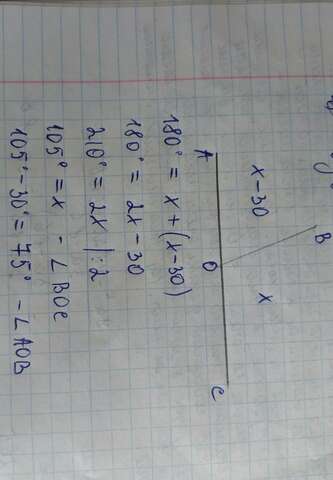 B
x-30
x
A
O
C
180° = x + (x-30)
180° = 2x - 30
210° = 2x | :2
105° = x - ∠BOC
105° - 30° = 75° - ∠AOB